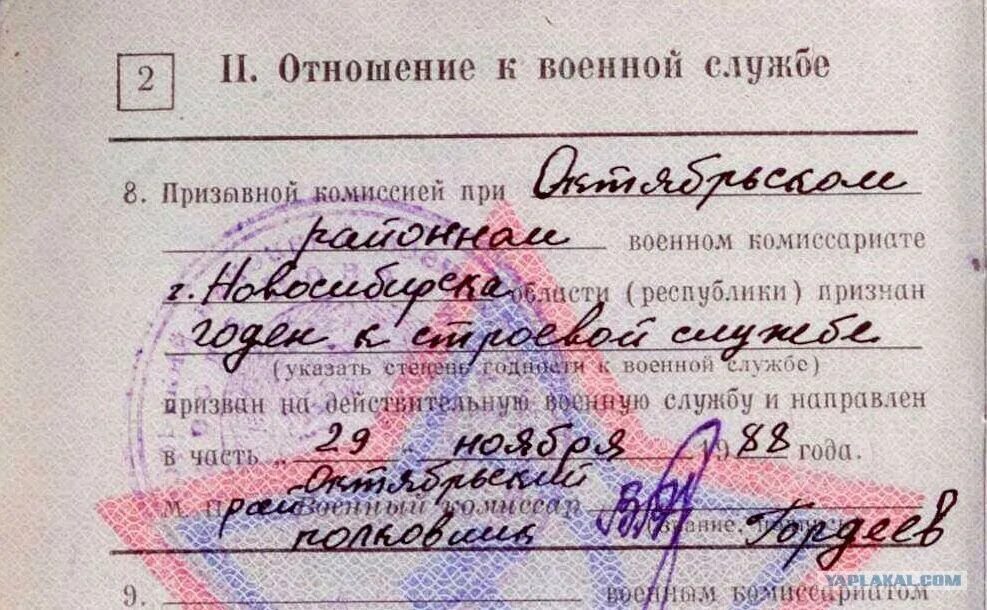 2
II. Отношение к военной службе
8. Призывной комиссией при Октябрьском
районном военном комиссариате
г. Новосибирска области (республики) признан
годен к строевой службе
(указать степень годности к военной службе)
призван на действительную военную службу и направлен
в часть „ 29 ноября 1988 года.
Октябрьский
М. П. рай Военный комиссар
полковник звание, Гордеев
9. военным комиссариатом
YAPLAKAL.COM